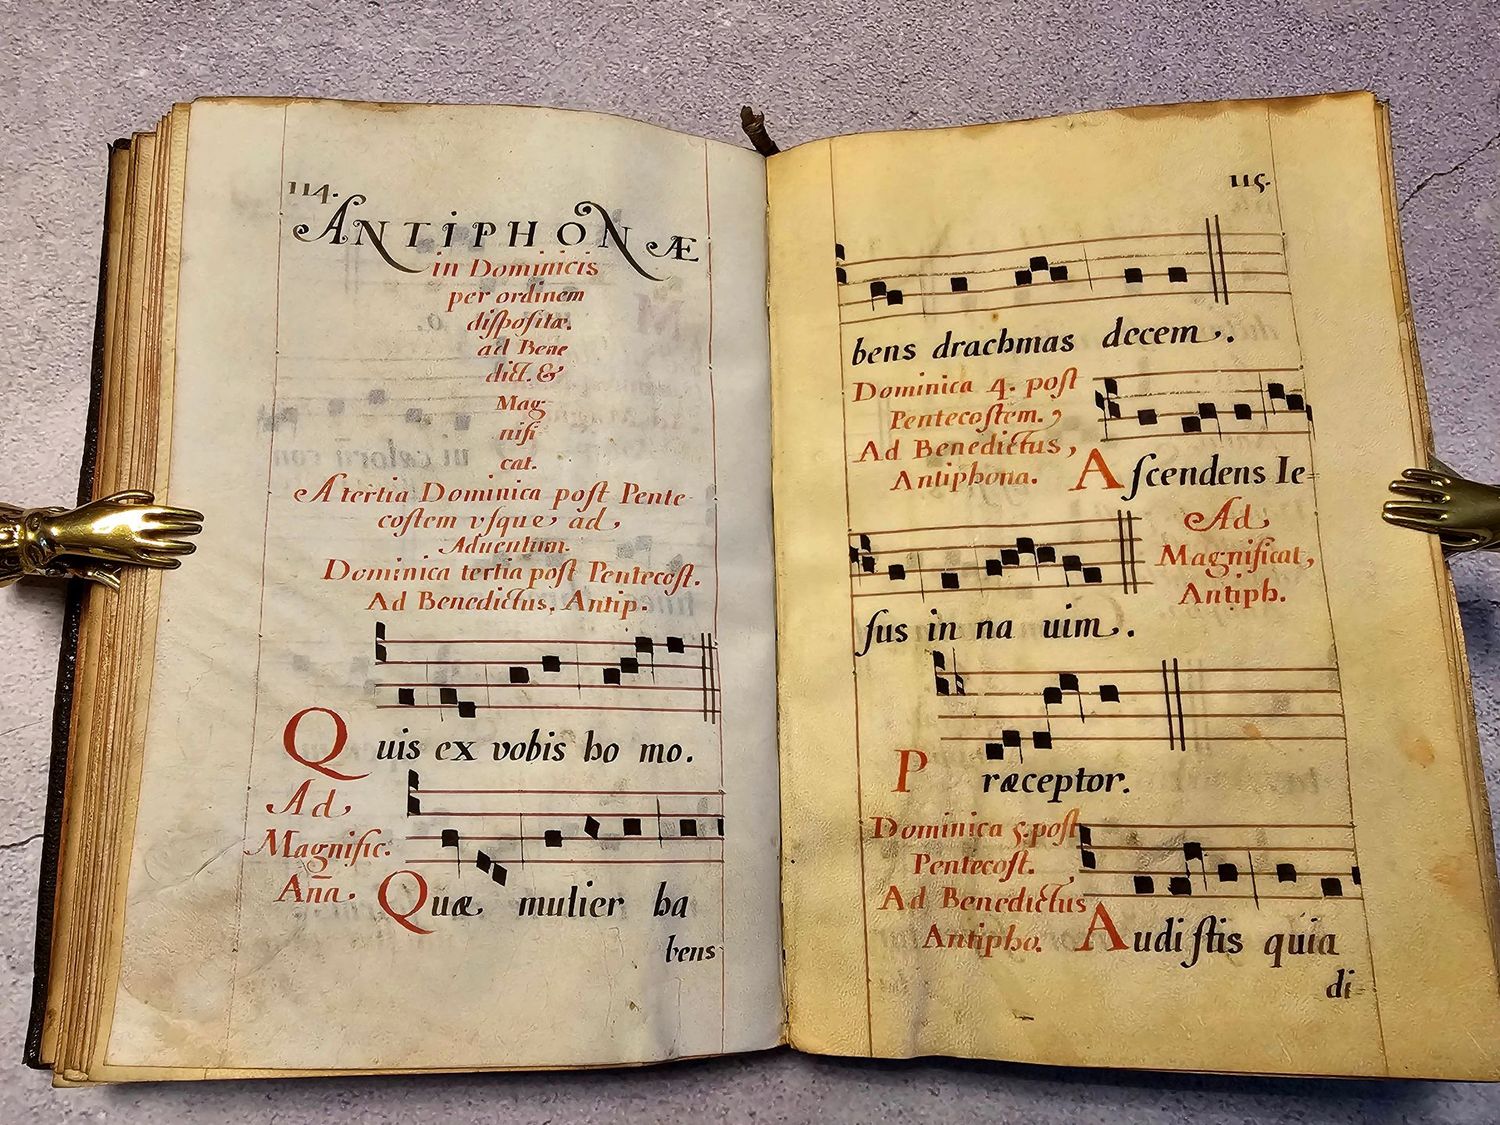 114.
ANTIPHONÆ
in Dominicis
per ordinem
diſpoſitæ.
ad Bene
dict. &
Mag-
nifi
cat.
A tertia Dominica poſt Pente-
coſtem vſque ad
Aduentum.
Dominica tertia poſt Pentecoſt.
Ad Benedictus, Antip.
Quis ex vobis ho mo.
Ad
Magnific.
Aña.
Quæ mulier ha
bens
115.
bens drachmas decem.
Dominica 4. poſt
Pentecoſtem.,
Ad Benedictus,
Antiphona.
Aſcendens Ie-
ſus in na uim.
Ad
Magnificat,
Antiph.
Præceptor.
Dominica 5. poſt
Pentecoſt.
Ad Benedictus
Antipho.
Audi ſtis quia
di-